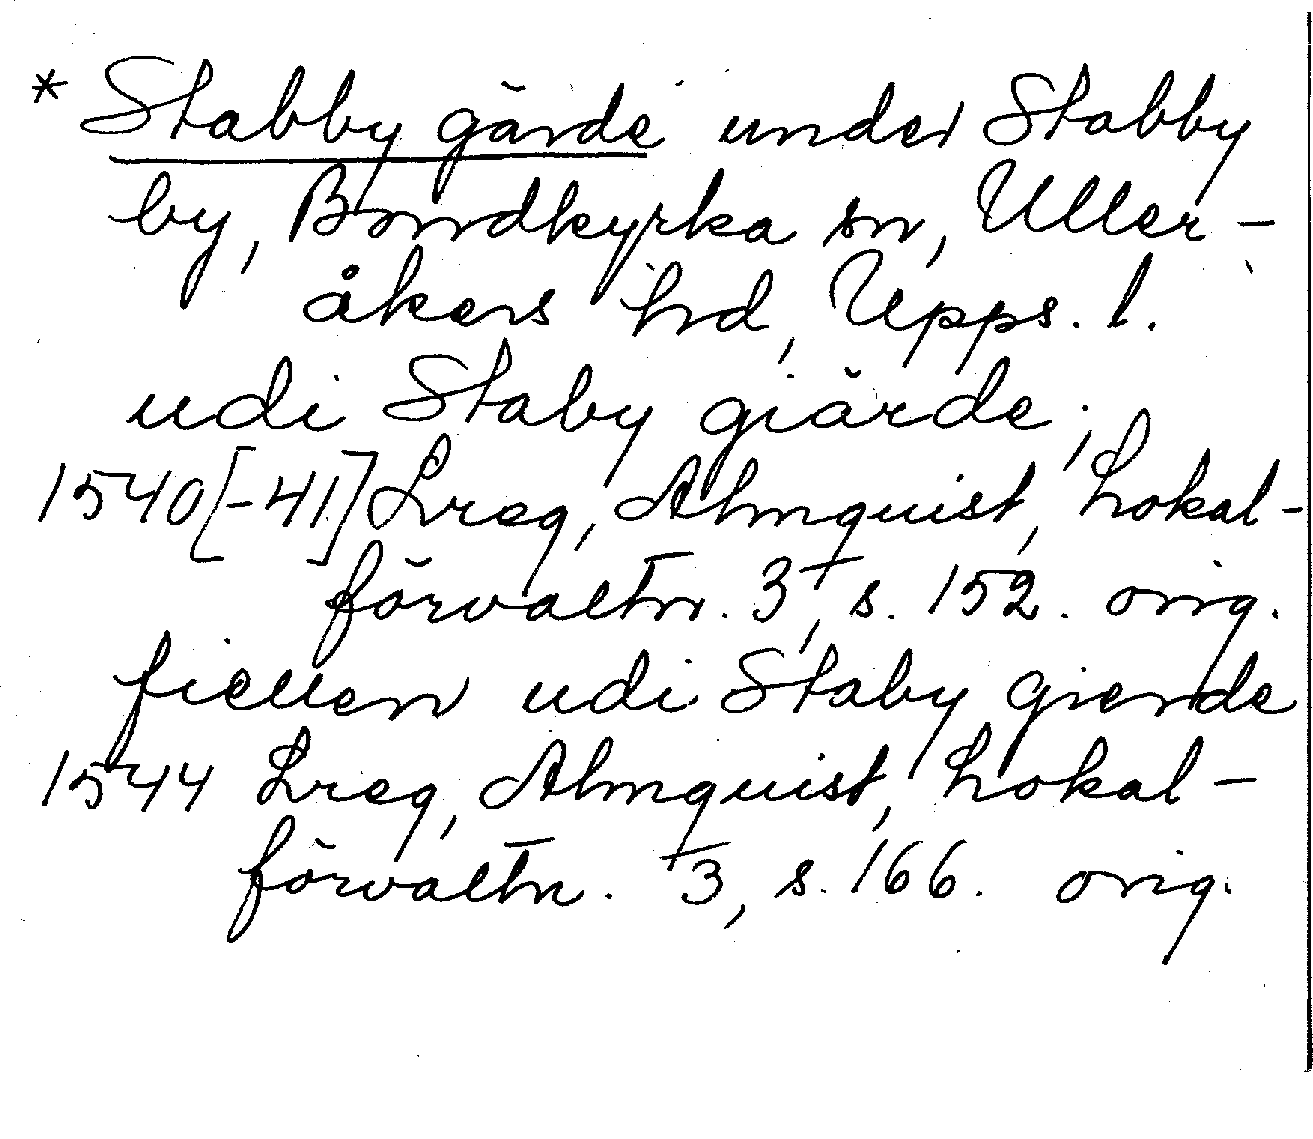 * Stabby gärde under Stabby
by, Bondkyrka sn, Uller-
åkers hd, Upps. l.
udi Staby giärde;
1540[-41] Lreg, Almquist, Lokal-
förvaltn. 3, s. 152. orig.
fiellen udi Staby gierde
1544 Lreg, Almquist, Lokal-
förvaltn. 3, s. 166. orig.